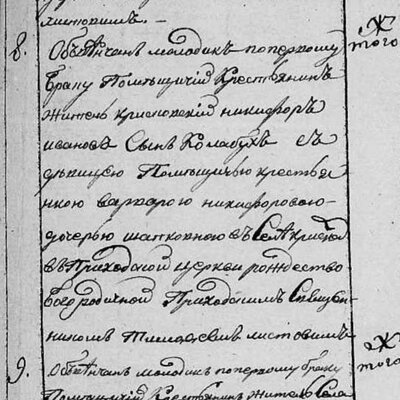 листовимъ. —
8. Обвѣнчан молодикъ поперкому
браку Помѣщичій Крестьянинъ
житель крисновскій никифоръ
ивановъ Сынъ Колабухъ съ
дѣвицею Помѣщичью крестья
нкою варварою никифоровою
дочерью шапковною въ Селѣ
въ Приходской церкви рождество
богородичной Приходскимъ Священ-
никомъ листовимъ
Ж
того
9. Обвѣнчан молодикъ поперкому браку
Помѣщичій Крестьянинъ житель Села
Ж
того